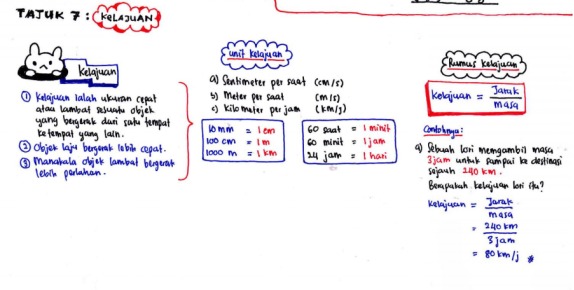 TAJUK 7 : KELAJUAN
Kelajuan
① Kelajuan ialah ukuran cepat
atau lambat sesuatu objek
yang bergerak dari satu tempat
ke tempat yang lain.
② Objek laju bergerak lebih cepat.
③ Manakala objek lambat bergerak
lebih perlahan.
Unit Kelajuan
a) Sentimeter per saat (cm/s)
b) Meter per saat (m/s)
c) Kilometer per jam (km/j)
10 mm = 1 cm
100 cm = 1 m
1000 m = 1 km
60 saat = 1 minit
60 minit = 1 jam
24 jam = 1 hari
Rumus Kelajuan
Kelajuan = Jarak
masa
Contohnya :
a) Sebuah lori mengambil masa
3 jam untuk sampai ke destinasi
sejauh 240 km.
Berapakah kelajuan lori itu?
Kelajuan = Jarak
masa
= 240 km
3 jam
= 80 km/j #